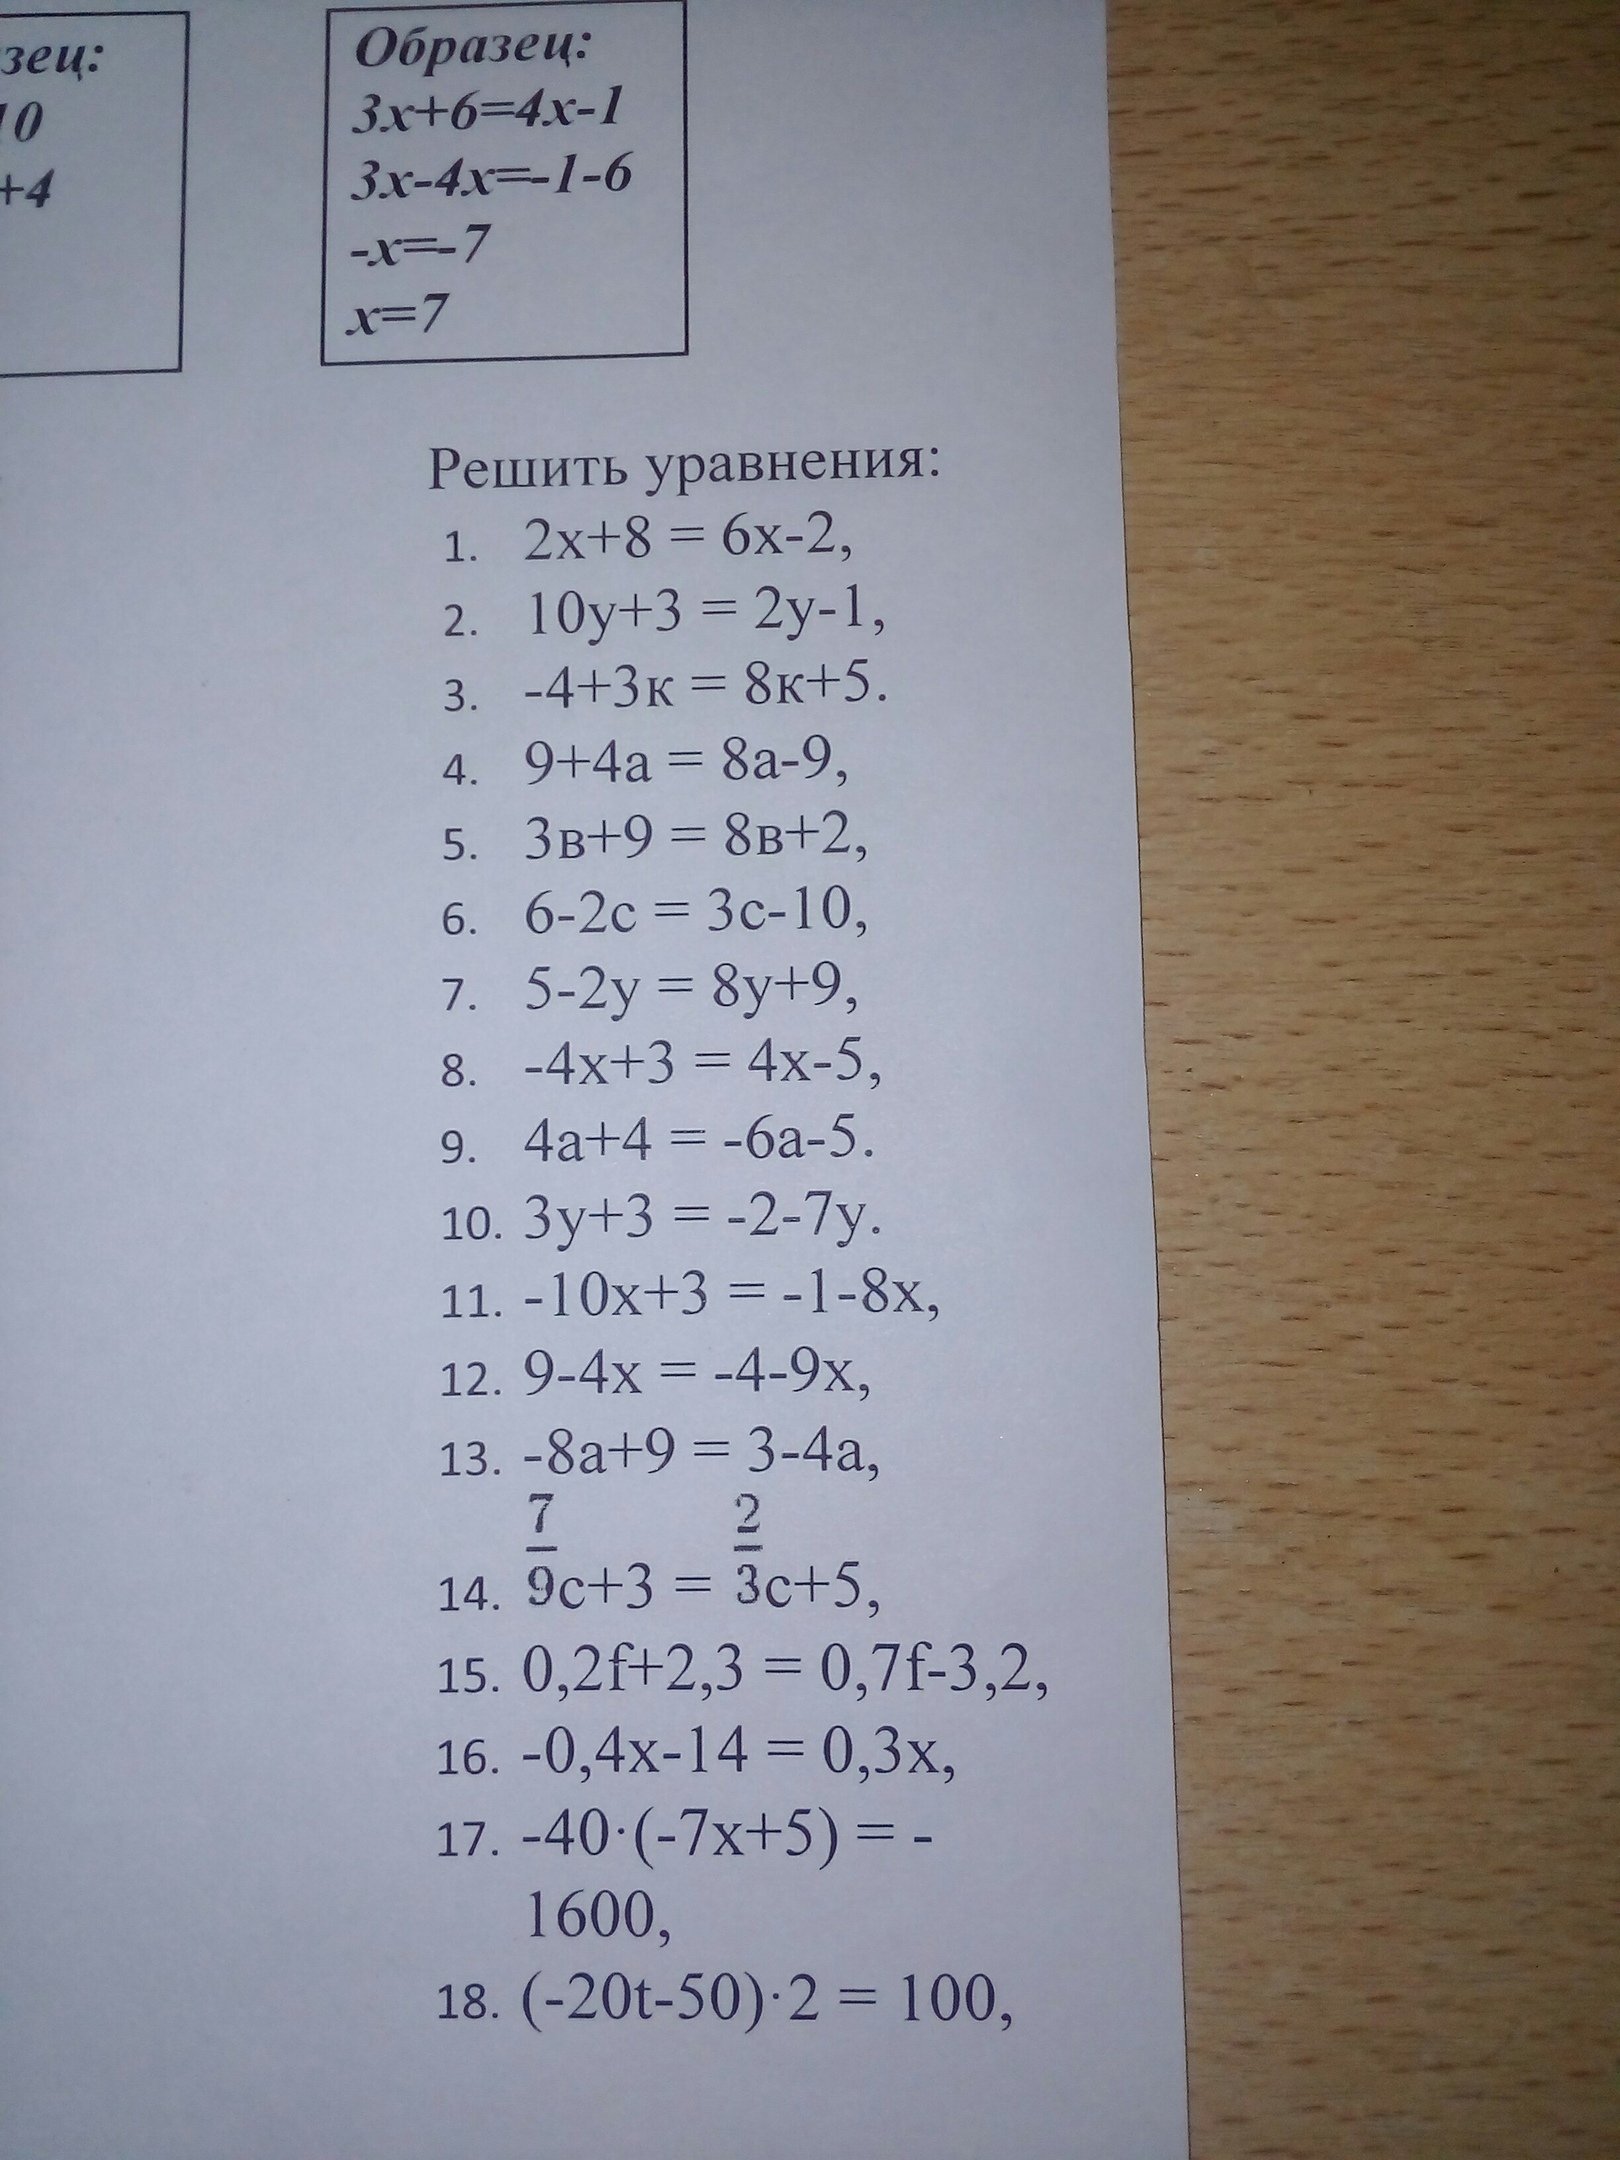 зец:
10
+4
Образец:
3х+6=4х-1
3х-4х=-1-6
-х=-7
х=7
Решить уравнения:
1. 2х+8 = 6х-2,
2. 10у+3 = 2у-1,
3. -4+3к = 8к+5.
4. 9+4а = 8а-9,
5. 3в+9 = 8в+2,
6. 6-2с = 3с-10,
7. 5-2у = 8у+9,
8. -4х+3 = 4х-5,
9. 4а+4 = -6а-5.
10. 3у+3 = -2-7у.
11. -10х+3 = -1-8х,
12. 9-4х = -4-9х,
13. -8а+9 = 3-4а,
14. 7/9с+3 = 2/3с+5,
15. 0,2f+2,3 = 0,7f-3,2,
16. -0,4х-14 = 0,3х,
17. -40·(-7х+5) = -
1600,
18. (-20t-50)·2 = 100,